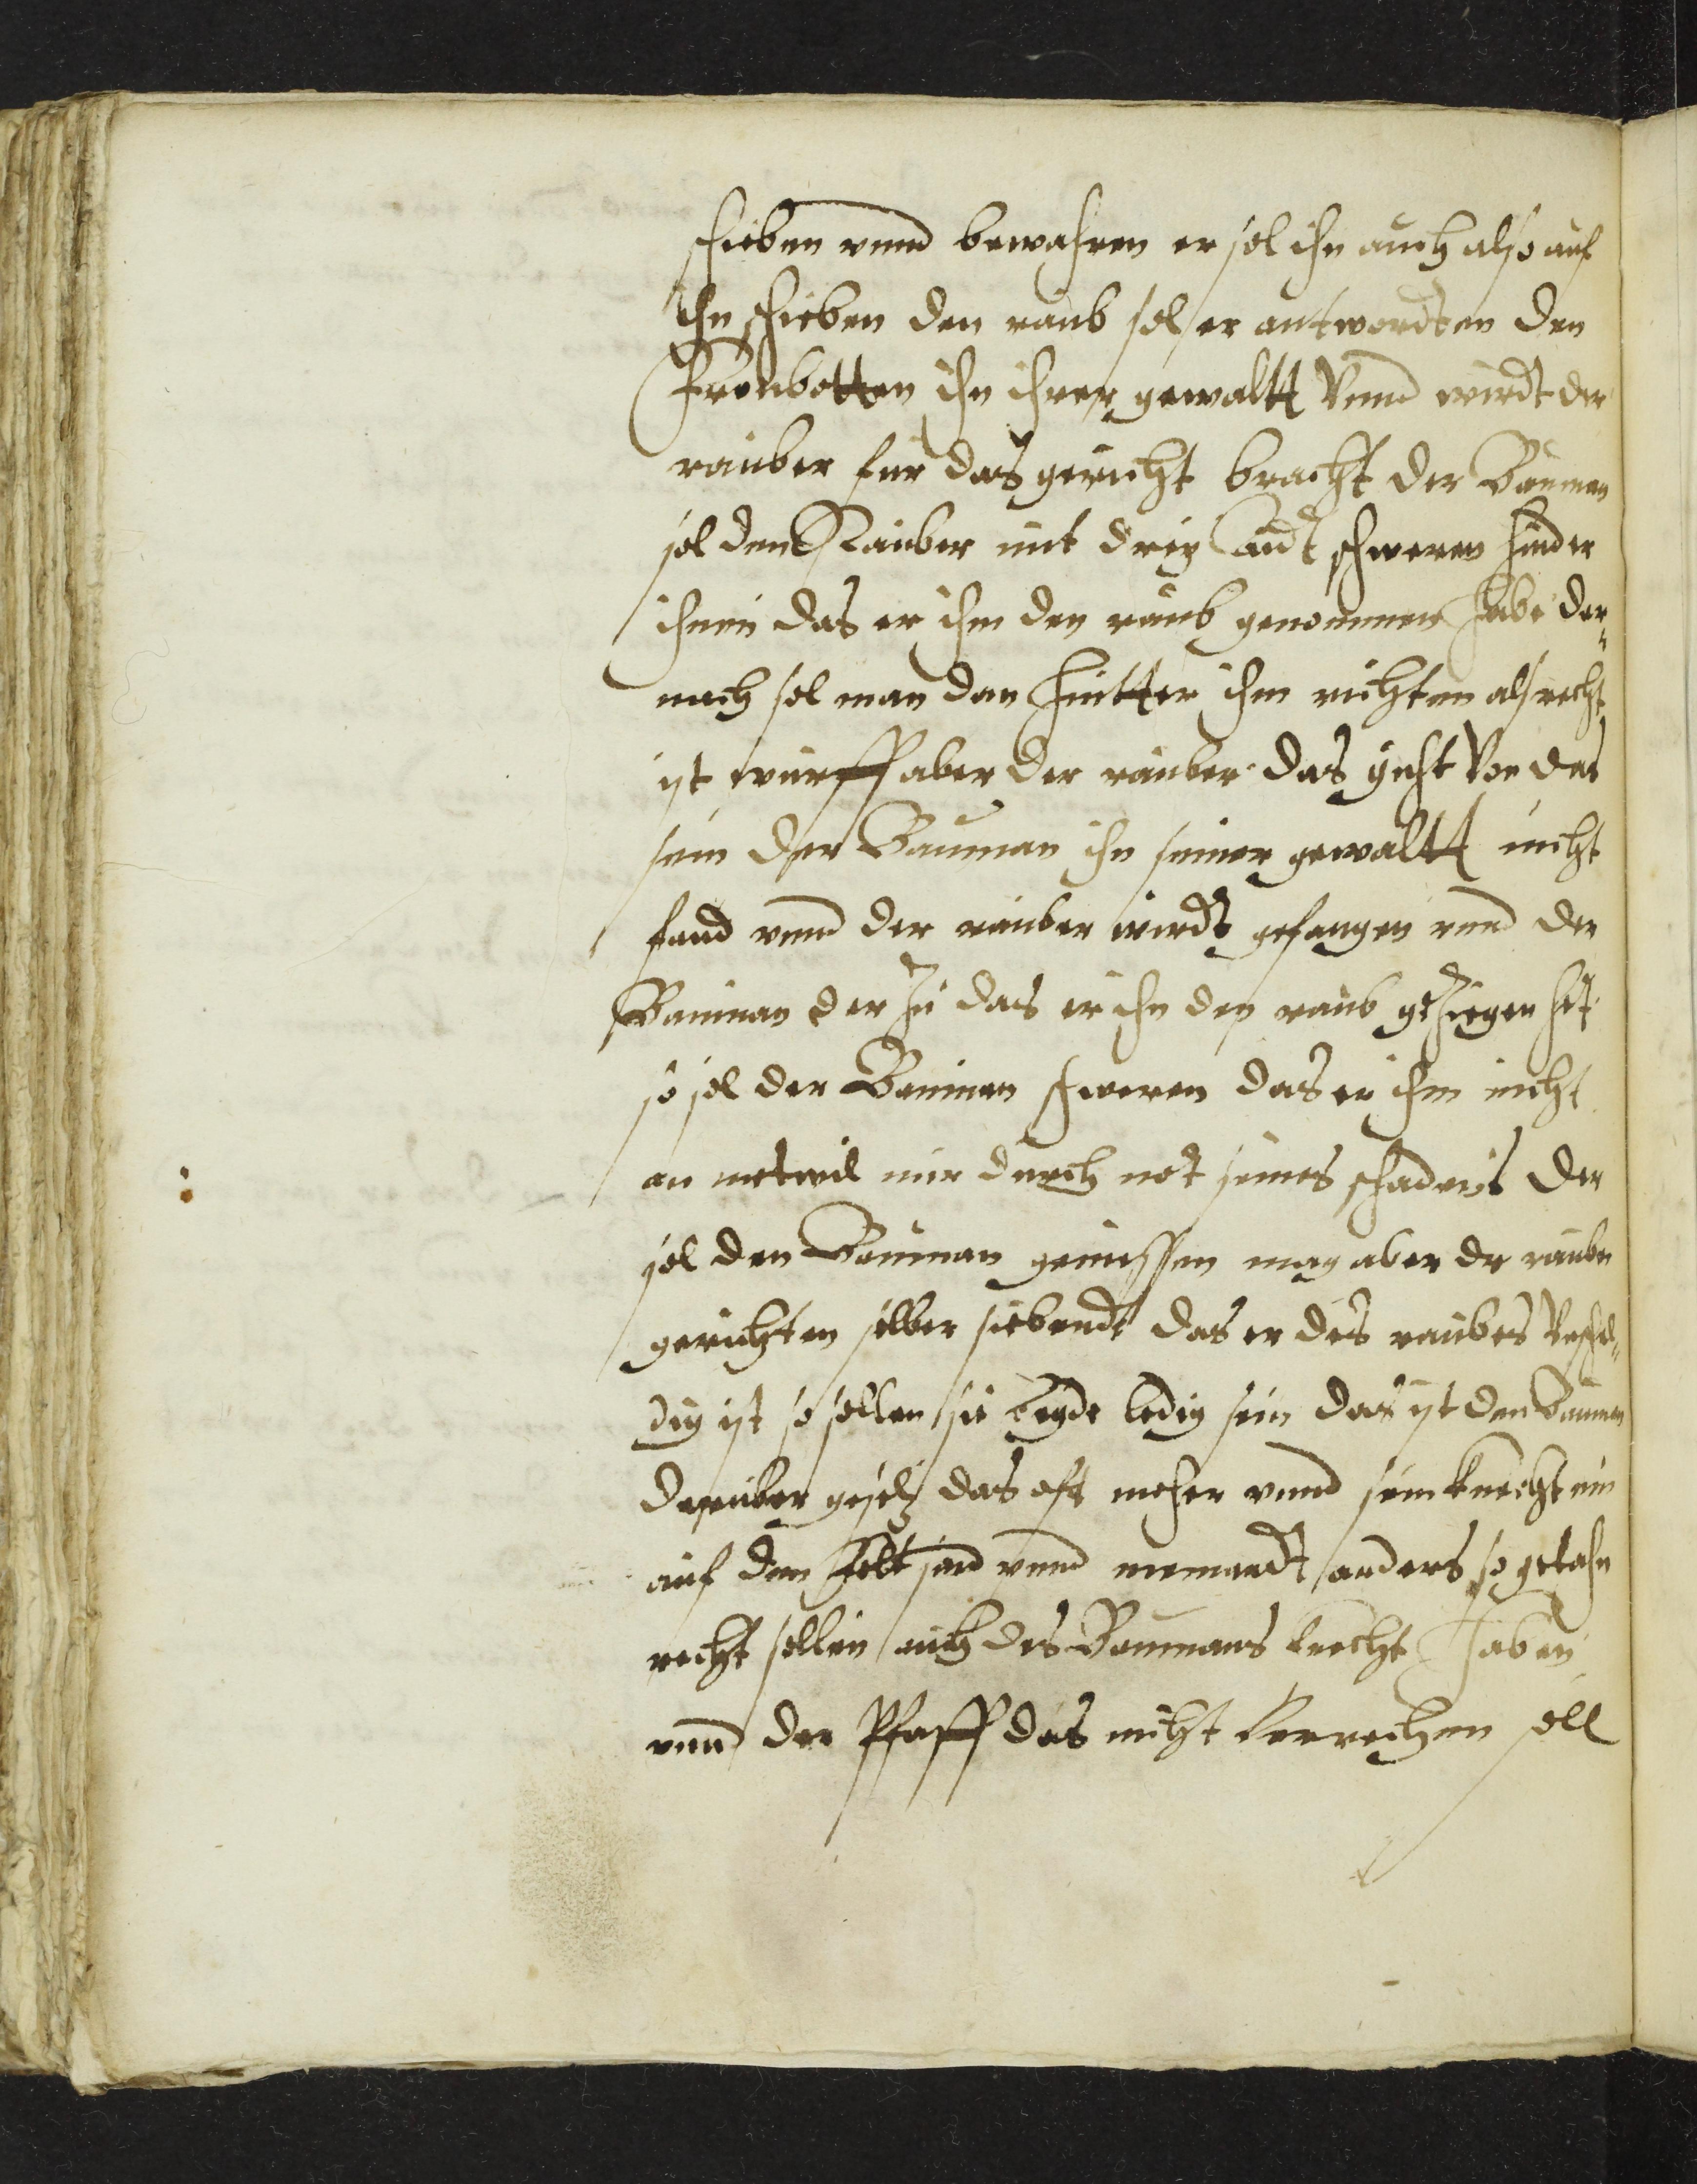 schieben vnnd bewahren er sol ihn auch also auf
ihn schieben den raub sol er antwordten den
fronbotten ihn ihrer gewaltt Vnnd wirdt der
rauber für das gericht bracht der Bauman
sol den Rauber mit dreyen schweren hinder
ihnen das er ihm den raub genommen habe der„
nach sol man dan hintter ihm richten als recht
ist wurff aber der rauber das Von das
sein der Bauman ihn seiner gewaltt nicht
fand vnnd der rauber wirdt gefangen vnd der
Bauman der zu das er ihn den raub geziegen het
so sol der Bauman schweren das er ihm nicht
an mutwil nur durch not seines schadens der
sol den Bauman geniessen mag aber der rauber
gerichten selber siebendt das er des raubes Vnschul„
dig ist so sollen sie beyde ledig sein das ist den Bauman
darüber gesetz das oft meher vnnd sein knecht ein
auf dem felt sind vnnd niemandt anders so getahn
recht sollen auch des Baumans knecht haben
vnnd der Pfaff das nicht verrechen soll